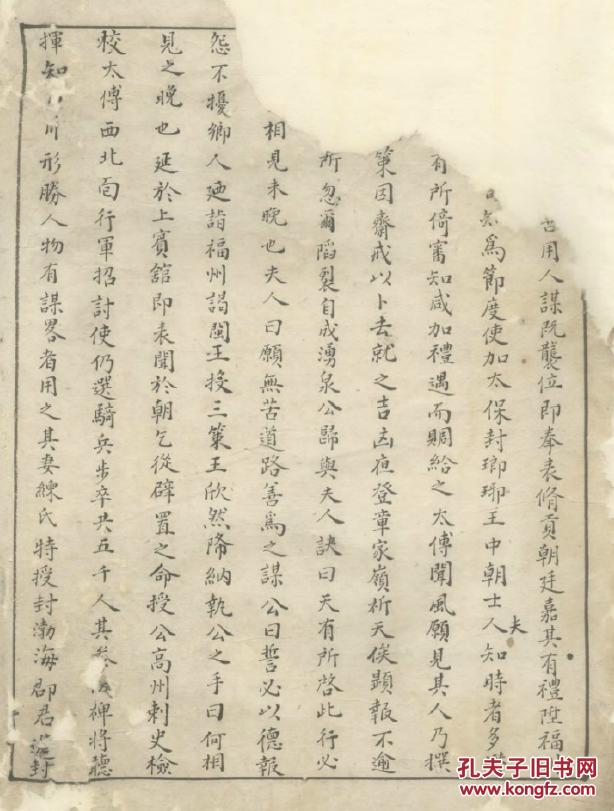 用人謀既襲位即奉表脩貢朝廷嘉其有禮陞福
知為節度使加太保封瑯琊王中朝士人知時者多
夫
有所倚審知咸加禮遇而賙給之太傅聞風願見其人乃撰
策因齋戒以卜去就之吉凶夜登章家嶺祈天俟顯報不逾
所忽爾滔裂自成湧泉公歸與夫人訣曰天有所啓此行必
相見未晚也夫人曰願無苦道路善爲之謀公曰誓必以德報
怨不擾鄉人廼詣福州謁閩王投三策王欣然降納執公之手曰何相
見之晚也延於上賓舘即表聞於朝乞從辟置之命授公高州刺史檢
校太傅西北面行軍招討使仍選騎兵步卒共五千人其叅裨將聽
揮知形勝人物有謀畧者用之其妻練氏特授封渤海郡君進封
孔夫子旧书网
www.kongfz.com